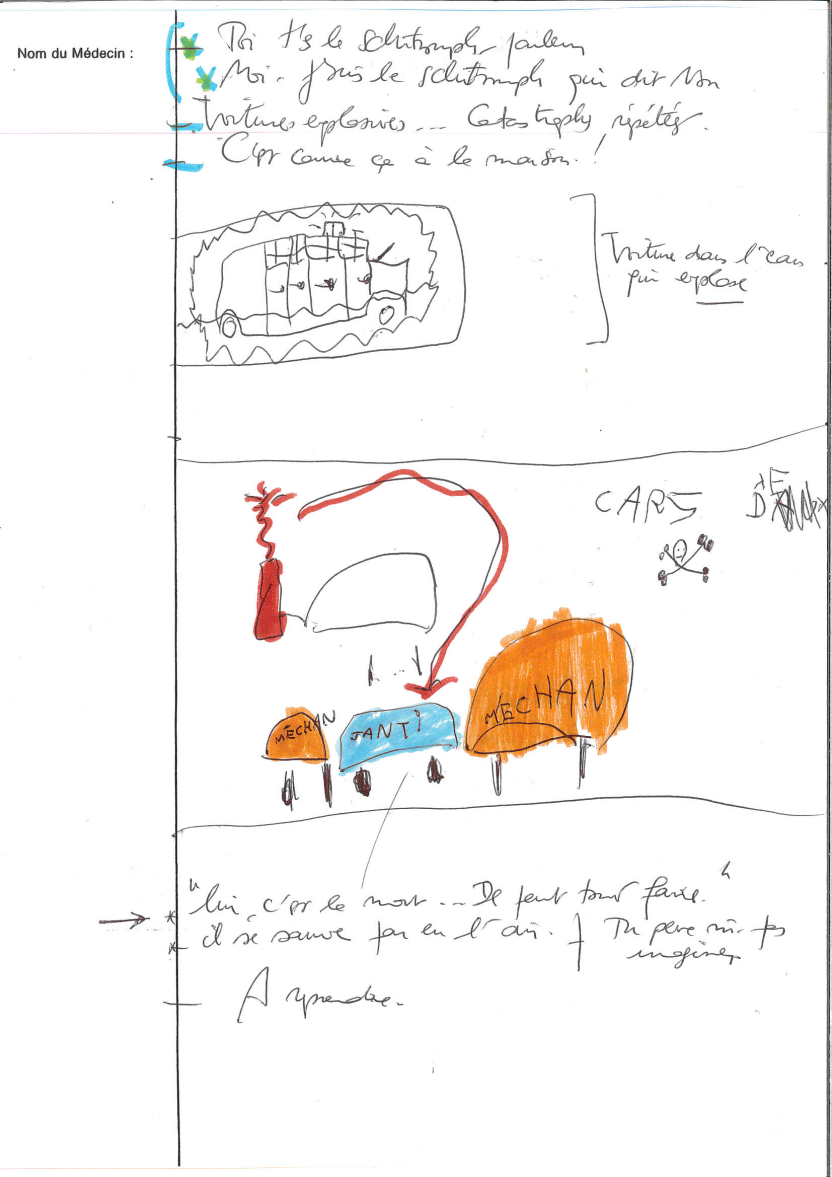 Nom du Médecin :
Toi t'es le schtroumph
Moi. J'suis le schtroumph qui dit Non
Voitures explosives... Catastrophes répétés.
C'est comme ça à la maison !
Voiture dans l'eau
qui explose
CARS DE
MÉCHAN
JANTI
MÉCHAN
"lui, c'est le mort... Il peut tout faire."
il se sauve par en l'air.
imaginer
A reprendre.